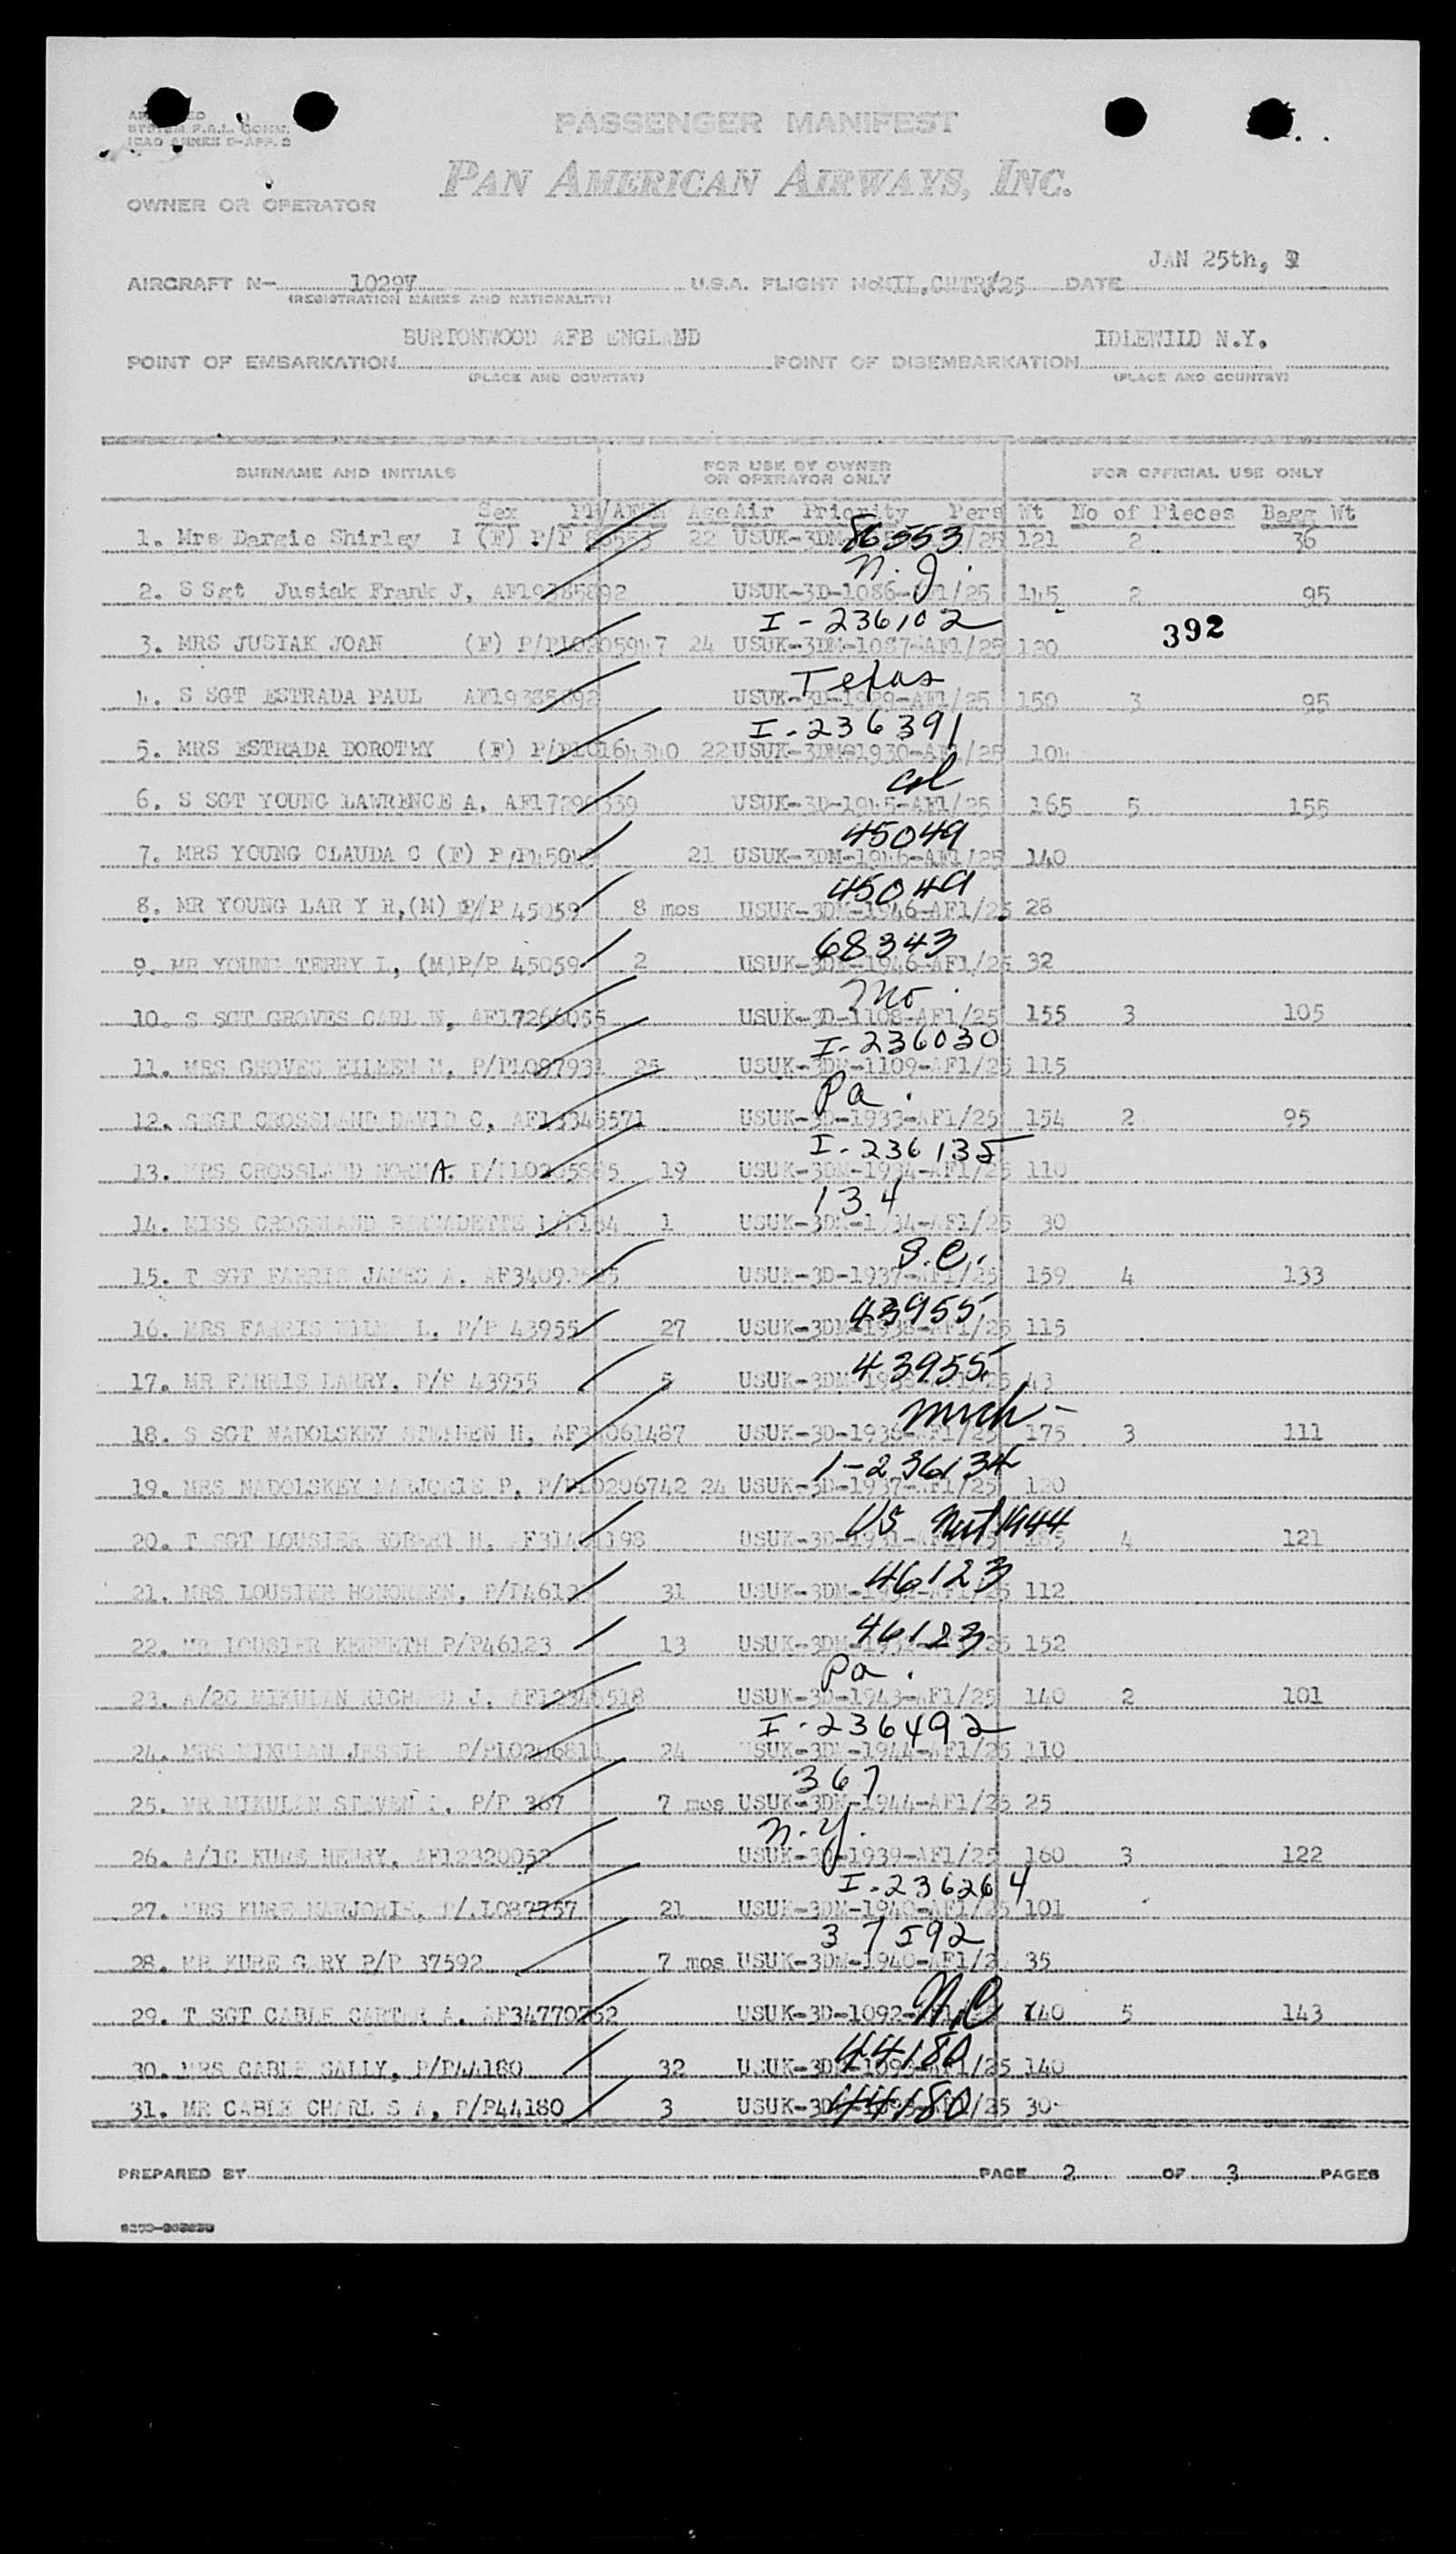 SYSTEM F.A.L. COMM.
ICAO ANNEX 9-APP. 2
PASSENGER MANIFEST
PAN AMERICAN AIRWAYS, INC.
OWNER OR OPERATOR
JAN 25th,
AIRCRAFT N- 1029V U.S.A. FLIGHT No 25 DATE
(REGISTRATION MARKS AND NATIONALITY)
BURTONWOOD AFB ENGLAND IDLEWILD N.Y.
POINT OF EMBARKATION POINT OF DISEMBARKATION
(PLACE AND COUNTRY) (PLACE AND COUNTRY)
SURNAME AND INITIALS FOR USE BY OWNER OR OPERATOR ONLY FOR OFFICIAL USE ONLY
Sex Age Air Priority Pers Wt No of Pieces Bagg Wt
86553
1. Mrs Dargie Shirley I (F) P/P 22 USUK-3DM /25 121 2 36
N.J.
2. S Sgt Jusiak Frank J, USUK-3D-1086-AF1/25 145 2 95
I-236102
3. MRS JUSIAK JOAN (F) 24 USUK-3DM-1087-AF1/25 120 392
Texas
4. S SGT ESTRADA PAUL USUK-3D-1929-AF1/25 150 3 95
I-236391
5. MRS ESTRADA DOROTHY (F) 22 USUK-3DM-1930-AF1/25 104
Col
6. S SGT YOUNG LAWRENCE A. USUK-3D-1945-AF1/25 165 5 155
45049
7. MRS YOUNG CLAUDA C (F) 21 USUK-3DM-1946-AF1/25 140
45049
8. MR YOUNG LAR Y R,(M) P/P 45059 8 mos USUK-3DM-1946-AF1/25 28
68343
9. MR YOUNG TERRY L, (M)P/P 45059 2 USUK-3DM-1946-AF1/25 32
Mo.
10. S SGT GROVES CARL N, AF17266055 USUK-3D-1108-AF1/25 155 3 105
I-236030
11. MRS GROVES EILEEN M. 25 USUK-3DM-1109-AF1/25 115
Pa.
12. SSGT CROSSLAND DAVID C, USUK-3D-1933-AF1/25 154 2 95
I-236135
13. MRS CROSSLAND NORMA. 19 USUK-3DM-1934-AF1/25 110
134
14. MISS CROSSLAND BERNADETTE 1 USUK-3DM-1934-AF1/25 30
S.C.
15. T SGT FARRIS JAMES A. USUK-3D-1937-AF1/25 159 4 133
43955
16. MRS FARRIS WILMA L. P/P 43955 27 USUK-3DM-1938-AF1/25 115
43955
17. MR FARRIS LARRY. P/P 43955 5 USUK-3DM 43
Mich-
18. S SGT NADOLSKEY STEPHEN H, USUK-3D-1936-AF1/25 175 3 111
1-236134
19. MRS NADOLSKEY MARJORIE P. 24 USUK-3D-1937-AF1/25 120
US Nat 1944
20. T SGT LOUSIER ROBERT H. USUK-3D-1931 4 121
46123
21. MRS LOUSIER HONOREEN, 31 USUK-3DM- 112
46123
22. MR LOUSIER KENNETH P/P46123 13 USUK-3DM- 152
Pa.
23. A/2C MIKULAN RICHARD J. USUK-3D-1943-AF1/25 140 2 101
I-236492
24. MRS MIKULAN JESSIE 24 USUK-3DM-1944-AF1/25 110
367
25. MR MIKULAN STEVEN P/P 367 7 mos USUK-3DM-1944-AF1/25 25
N.Y.
26. A/1C KURE HENRY, AF12320052 USUK-3D-1939-AF1/25 160 3 122
I-236264
27. MRS KURE MARJORIE, 21 USUK-3DM-1940-AF1/25 101
37592
28. MR KURE GARY P/P 37592 7 mos USUK-3DM-1940-AF1/2 35
N.C
29. T SGT CABLE CARTER A. USUK-3D-1092- 140 5 143
44180
30. MRS CABLE SALLY, P/P44180 32 USUK-3DM-1093-AF1/25 140
44180
31. MR CABLE CHARL S A, P/P44180 3 USUK-3DM /25 30
PREPARED BY PAGE 2 OF 3 PAGES